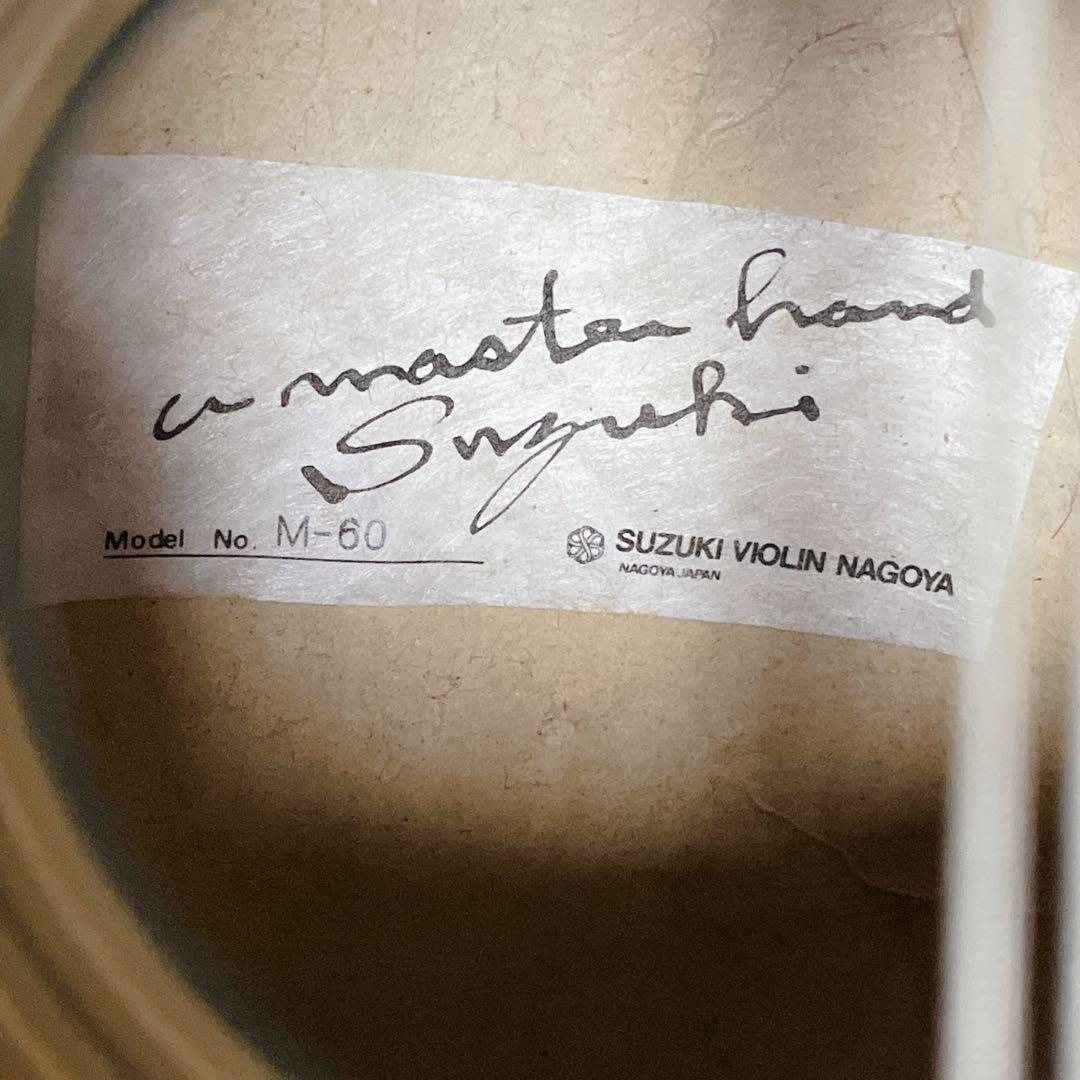 a master hand
Suzuki
Model No. M-60
SUZUKI VIOLIN NAGOYA
NAGOYA JAPAN